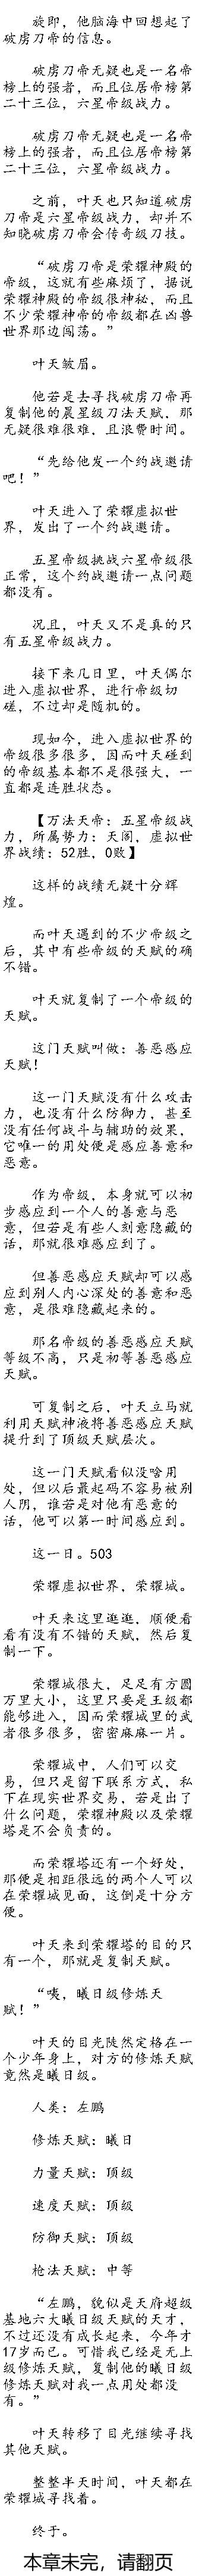 旋即，他脑海中回想起了
破虏刀帝的信息。
破虏刀帝无疑也是一名帝
榜上的强者，而且位居帝榜第
二十三位，六星帝级战力。
破虏刀帝无疑也是一名帝
榜上的强者，而且位居帝榜第
二十三位，六星帝级战力。
之前，叶天也只知道破虏
刀帝是六星帝级战力，却并不
知晓破虏刀帝会传奇级刀技。
“破虏刀帝是荣耀神殿的
帝级，这就有些麻烦了，据说
荣耀神殿的帝级很神秘，而且
不少荣耀神帝的帝级都在凶兽
世界那边闯荡。”
叶天皱眉。
他若是去寻找破虏刀帝再
复制他的晨星级刀法天赋，那
无疑很难很难，且浪费时间。
“先给他发一个约战邀请
吧！”
叶天进入了荣耀虚拟世
界，发出了一个约战邀请。
五星帝级挑战六星帝级很
正常，这个约战邀请一点问题
都没有。
况且，叶天又不是真的只
有五星帝级战力。
接下来几日里，叶天偶尔
进入虚拟世界，进行帝级切
磋，不过却是随机的。
现如今，进入虚拟世界的
帝级很多很多，因而叶天碰到
的帝级基本都不是很强大，一
直都是连胜状态。
【万法天帝：五星帝级战
力，所属势力：天阁，虚拟世
界战绩：52胜，0败】
这样的战绩无疑十分辉
煌。
而叶天遇到的不少帝级之
后，其中有些帝级的天赋的确
不错。
叶天就复制了一个帝级的
天赋。
这门天赋叫做：善恶感应
天赋！
这一门天赋没有什么攻击
力，也没有什么防御力，甚至
没有任何战斗与辅助的效果，
它唯一的用处便是感应善意和
恶意。
作为帝级，本身就可以初
步感应到一个人的善意与恶
意，但若是有些人刻意隐藏的
话，那就很难感应到了。
但善恶感应天赋却可以感
应到别人内心深处的善意和恶
意，是很难隐藏起来的。
那名帝级的善恶感应天赋
等级不高，只是初等善恶感应
天赋。
可复制之后，叶天立马就
利用天赋神液将善恶感应天赋
提升到了顶级天赋层次。
这一门天赋看似没啥用
处，但以后最起码不容易被别
人阴，谁若是对他有恶意的
话，他可以第一时间感应到。
这一日。503
荣耀虚拟世界，荣耀城。
叶天来这里逛逛，顺便看
看有没有不错的天赋，然后复
制一下。
荣耀城很大，足足有方圆
万里大小，这里只要是王级都
能够进入，因而荣耀城里的武
者很多很多，密密麻麻一片。
荣耀城中，人们可以交
易，但只是留下联系方式，私
下在现实世界交易，若是出了
什么问题，荣耀神殿以及荣耀
塔是不会负责的。
而荣耀塔还有一个好处，
那便是相距很远的两个人可以
在荣耀城见面，这倒是十分方
便。
叶天来到荣耀塔的目的只
有一个，那就是复制天赋。
“咦，曦日级修炼天
赋！”
叶天的目光陡然定格在一
个少年身上，对方的修炼天赋
竟然是曦日级。
人类：左鹏
修炼天赋：曦日
力量天赋：顶级
速度天赋：顶级
防御天赋：顶级
枪法天赋：中等
“左鹏，貌似是天府超级
基地六大曦日级天赋的天才，
不过还没有成长起来，今年才
17岁而已。可惜我已经是无上
级修炼天赋，复制他的曦日级
修炼天赋对我一点用处都没
有。”
叶天转移了目光继续寻找
其他天赋。
整整半天时间，叶天都在
荣耀城寻找着。
终于。
本章未完，请翻页